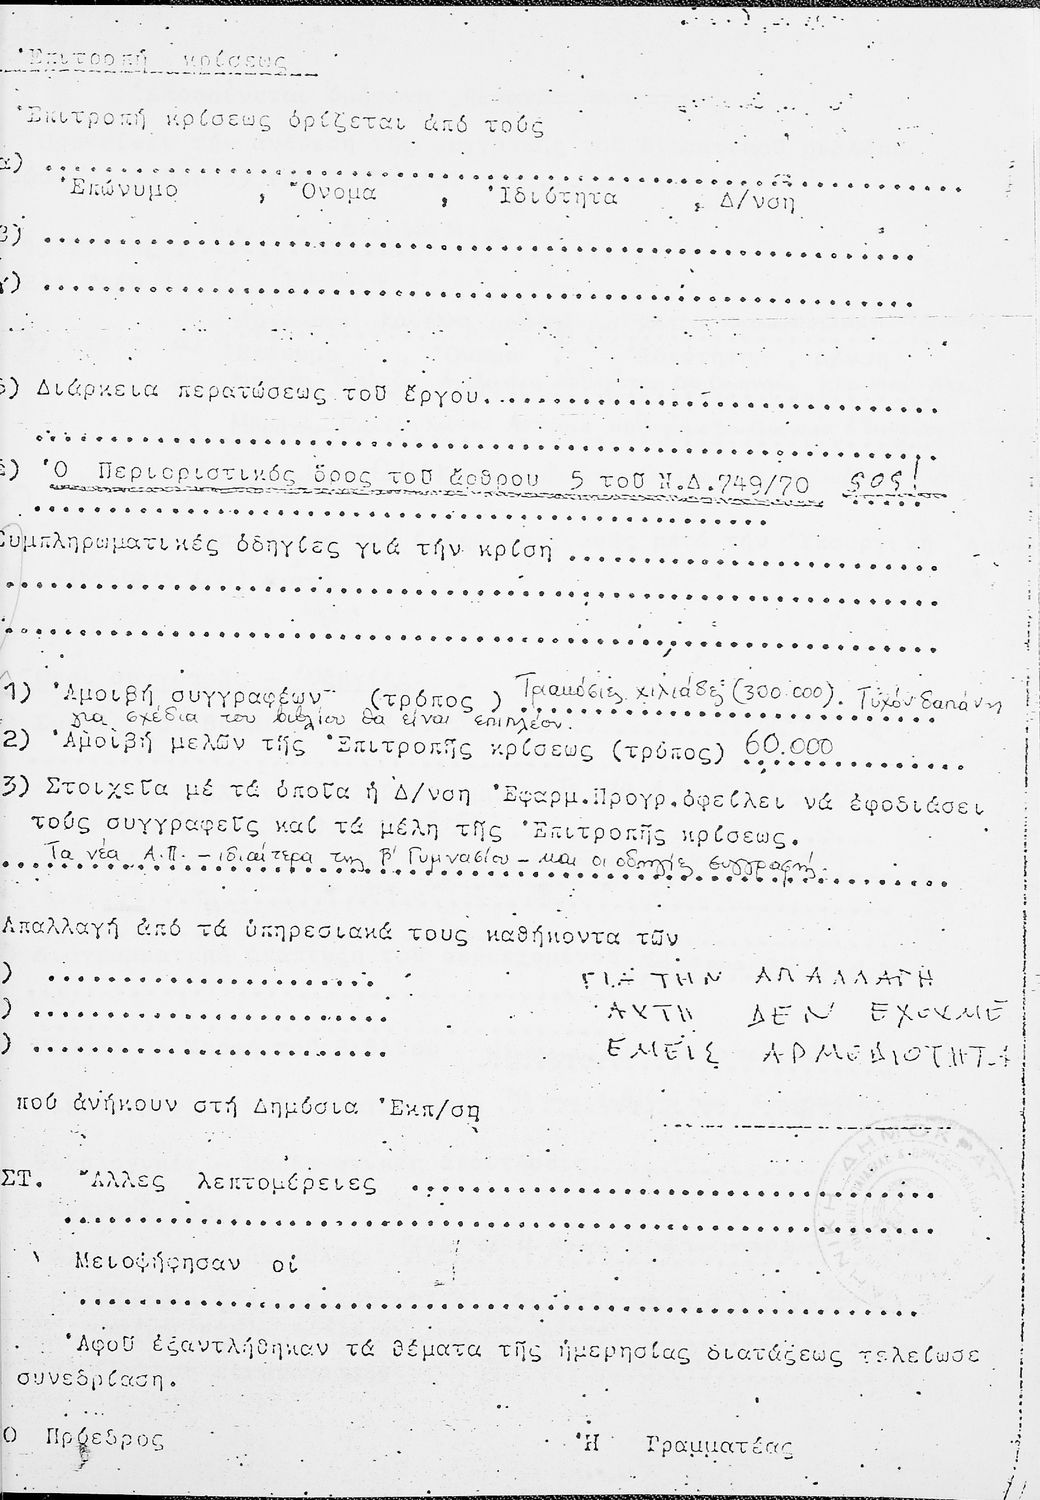 Ἐπιτροπή κρίσεως
Ἐπιτροπή κρίσεως ὁρίζεται ἀπό τούς
α) ..........
Ἐπώνυμο , Ὄνομα , Ἰδιότητα , Δ/νση
β) ..........
γ) ..........
δ) Διάρκεια περατώσεως τοῦ ἔργου..........
..........
ε) Ὁ Περιοριστικός ὅρος τοῦ ἄρθρου 5 τοῦ Ν.Δ.749/70 SOS!
..........
Συμπληρωματικές ὁδηγίες γιά τήν κρίση ..........
..........
..........
1) Ἀμοιβή συγγραφέων (τρόπος ) Τριακόσιες χιλιάδες (300.000). Τυχόν δαπάνη
για σχέδια του βιβλίου θα είναι επιπλέον.
2) Ἀμοιβή μελῶν τῆς Ἐπιτροπῆς κρίσεως (τρόπος) 60.000
3) Στοιχεῖα μέ τά ὁποῖα ἡ Δ/νση Ἐφαρμ.Προγρ.ὀφείλει νά ἐφοδιάσει
τούς συγγραφεῖς καί τά μέλη τῆς Ἐπιτροπῆς κρίσεως.
Τα νέα Α.Π. – ιδιαίτερα της β' Γυμνασίου – και οι οδηγίες συγγραφής.
Ἀπαλλαγή ἀπό τά ὑπηρεσιακά τους καθήκοντα τῶν
) .......... ΓΙΑ ΤΗΝ ΑΠΑΛΛΑΓΗ
) .......... ΑΥΤΗ ΔΕΝ ΕΧΟΥΜΕ
) .......... ΕΜΕΙΣ ΑΡΜΟΔΙΟΤΗΤΑ
πού ἀνήκουν στή Δημόσια Ἐκπ/ση
ΣΤ. Ἄλλες λεπτομέρειες ..........
..........
Μειοψήφησαν οἱ
..........
Ἀφοῦ ἐξαντλήθηκαν τά θέματα τῆς ἡμερησίας διατάξεως τελείωσε
συνεδρίαση.
Ο Πρόεδρος Ἡ Γραμματέας